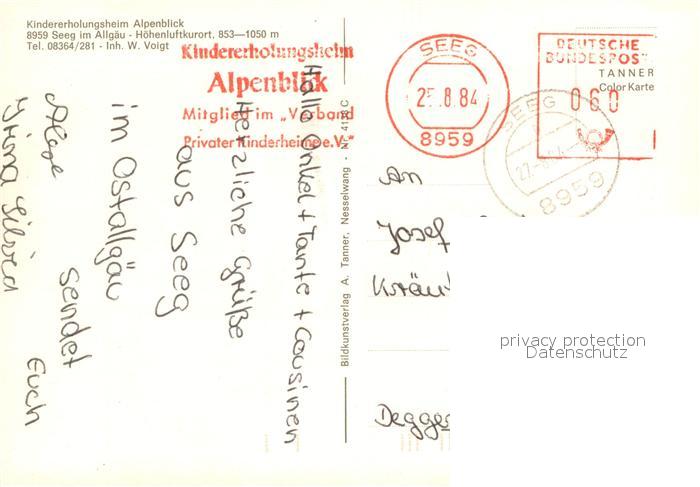 Kindererholungsheim Alpenblick
8959 Seeg im Allgäu - Höhenluftkurort, 853—1050 m
Tel. 08364/281 - Inh. W. Voigt
Kindererholungsheim
Alpenblick
Mitglied im „Verband
Privater Kinderheime e.V."
Hallo Onkel + Tante + Cousinen
Herzliche Grüße
aus Seeg
im Ostallgäu
sendet Euch
Bildkunstverlag A. Tanner, Nesselwang - Nr. 41 C
SEEG
25.8.84
8959
DEUTSCHE
BUNDESPOST
TANNER
Color Karte
060
SEEG
27.-8.84
8959
An
Josef
Kräu
Degge
privacy protection
Datenschutz